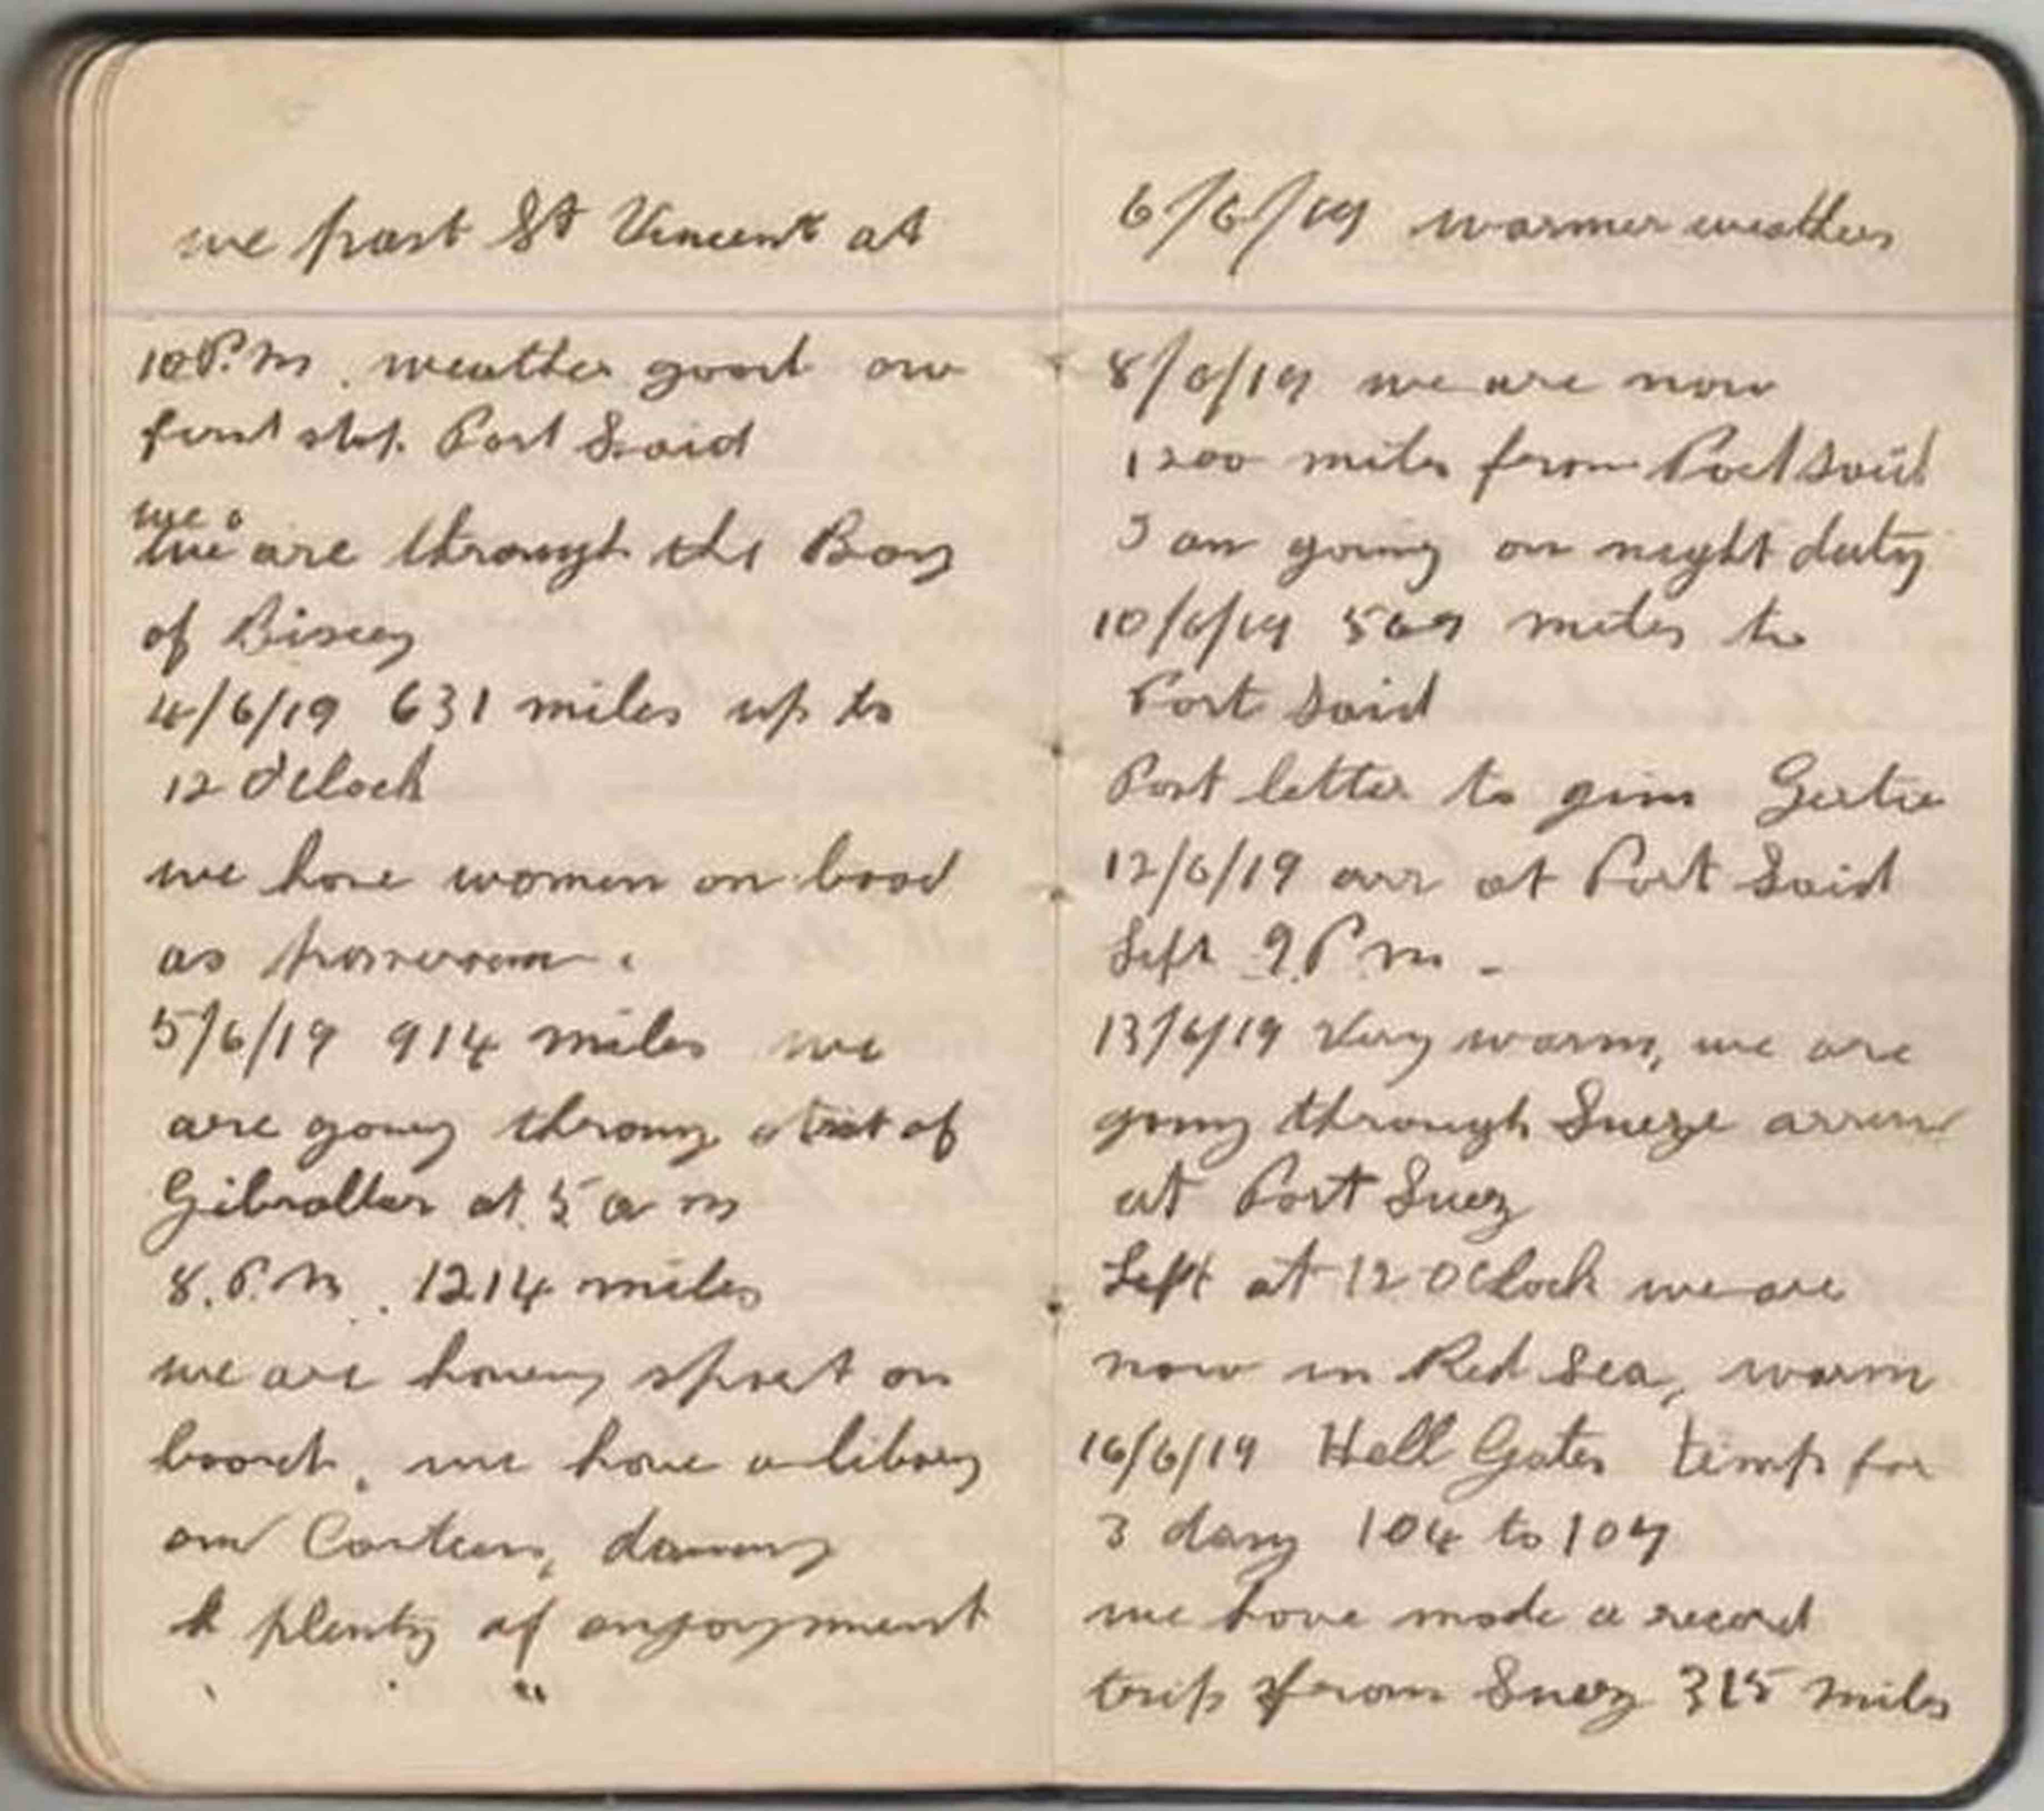 we past St Vincent at
10 P.m. weather good our
first stop Port Siaid
we
we are through the Bay
of Biscay
4/6/19 631 miles up to
12 O'Clock
we have women on boad
as
5/6/19 914 miles we
are going throug strait of
Gibralter at 5 a m
8. P.m. 1214 miles
we are having sport on
board, we have a libary
and Canteen,
& plenty of enjoyment
6/6/19 warmer weather
8/6/19 we are now
1200 miles from Port Said
I am going on night duty
10/6/19 569 miles to
Port Said
Post letter to Gertie
12/6/19 arr at Port Said
Left 9. P m -
13/6/19 Very warm, we are
going through Sueze
at Port Suez
Left at 12 OClock we are
now in Red Sea, warm
16/6/19 Hell Gates temp for
3 days 104 to 107
we have made a record
trip from Suez 315 miles